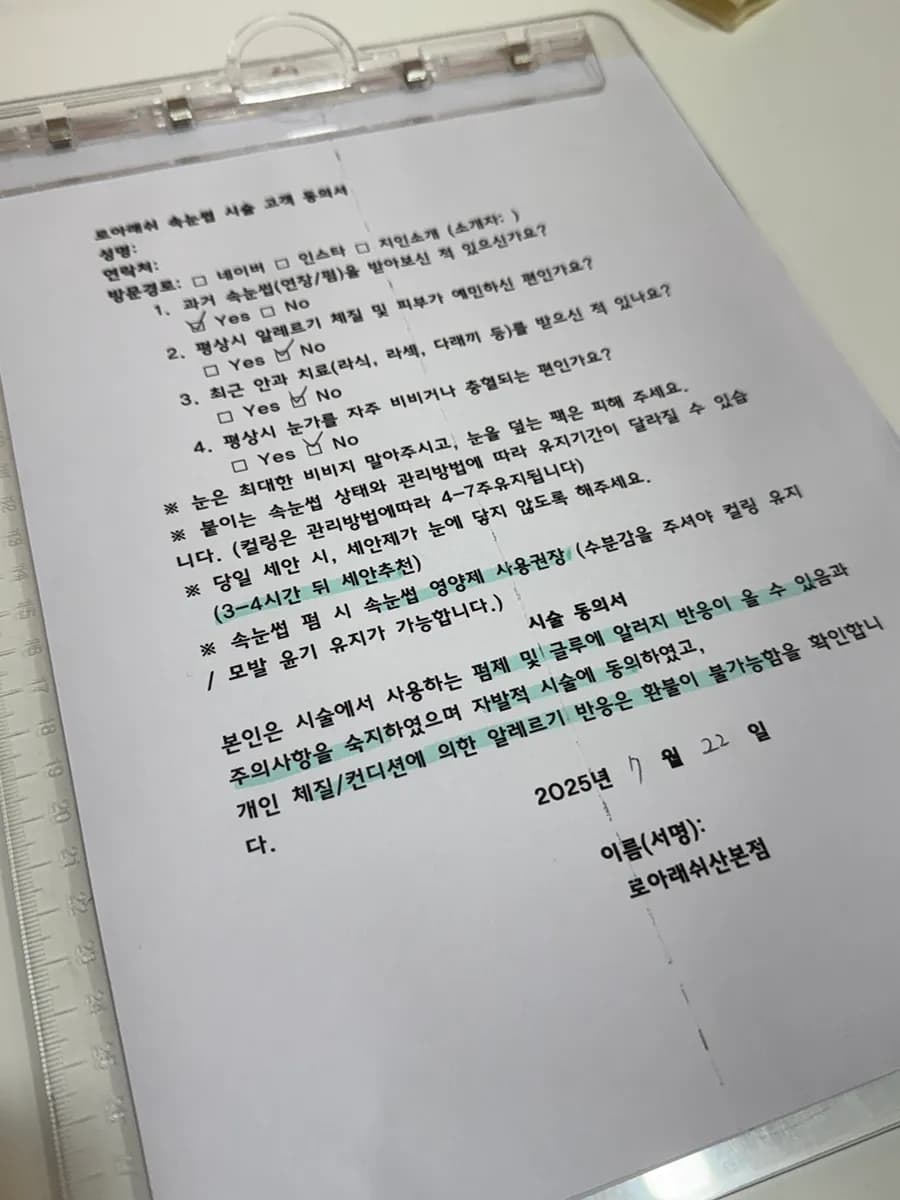 로아래쉬 속눈썹 시술 고객 동의서
성명:
연락처:
방문경로: □ 네이버 □ 인스타 □ 지인소개 (소개자: )
1. 과거 속눈썹(연장/펌)을 받아보신 적 있으신가요?
☑ Yes □ No
2. 평상시 알레르기 체질 및 피부가 예민하신 편인가요?
□ Yes ☑ No
3. 최근 안과 치료(라식, 라섹, 다래끼 등)를 받으신 적 있나요?
□ Yes ☑ No
4. 평상시 눈가를 자주 비비거나 충혈되는 편인가요?
□ Yes ☑ No
※ 눈은 최대한 비비지 말아주시고, 눈을 덮는 팩은 피해 주세요.
※ 붙이는 속눈썹 상태와 관리방법에 따라 유지기간이 달라질 수 있습
니다. (컬링은 관리방법에따라 4-7주유지됩니다)
※ 당일 세안 시, 세안제가 눈에 닿지 않도록 해주세요.
(3-4시간 뒤 세안추천)
※ 속눈썹 펌 시 속눈썹 영양제 사용권장 (수분감을 주셔야 컬링 유지
/ 모발 윤기 유지가 가능합니다.)
시술 동의서
본인은 시술에서 사용하는 펌제 및 글루에 알러지 반응이 올 수 있음과
주의사항을 숙지하였으며 자발적 시술에 동의하였고,
개인 체질/컨디션에 의한 알레르기 반응은 환불이 불가능함을 확인합니
다.
2025년 7 월 22 일
이름(서명):
로아래쉬산본점
18
19
20
21
22
23
24
25